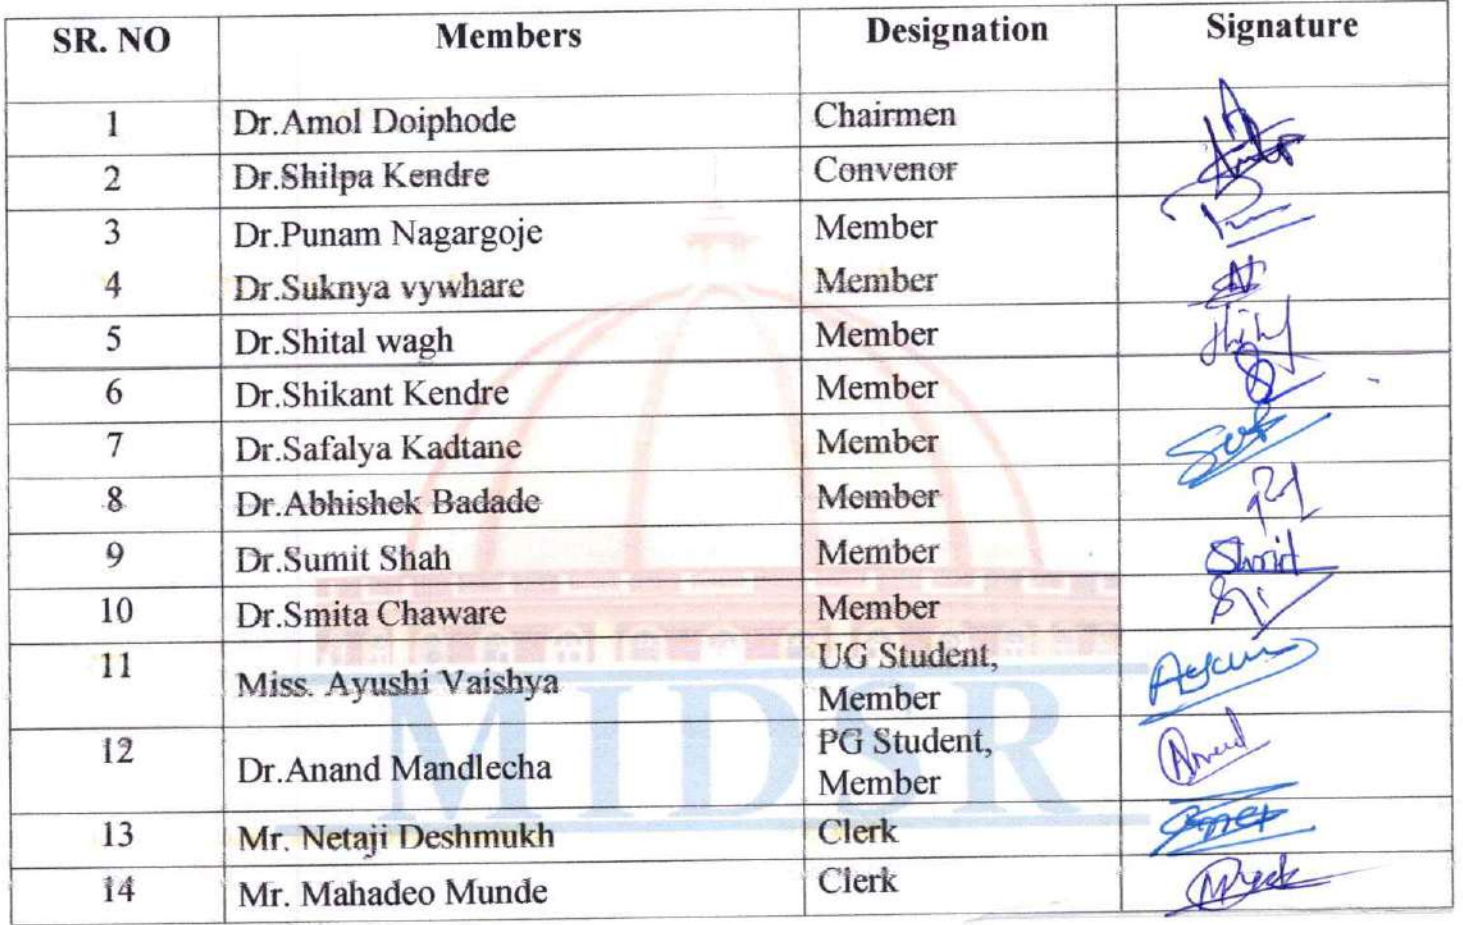 SR. NO Members Designation Signature
1 Dr.Amol Doiphode Chairmen
2 Dr.Shilpa Kendre Convenor
3 Dr.Punam Nagargoje Member
4 Dr.Suknya vywhare Member
5 Dr.Shital wagh Member
6 Dr.Shikant Kendre Member
7 Dr.Safalya Kadtane Member
8 Dr.Abhishek Badade Member
9 Dr.Sumit Shah Member
10 Dr.Smita Chaware Member
11 Miss. Ayushi Vaishya UG Student,
Member
12 Dr.Anand Mandlecha PG Student,
Member
13 Mr. Netaji Deshmukh Clerk
14 Mr. Mahadeo Munde Clerk
MIDSR